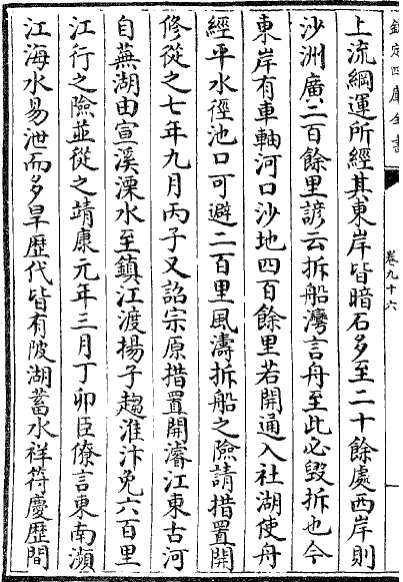 欽定四庫全書
卷九十六
上流綱運所經其東岸皆暗石多至二十餘處西岸則
沙洲廣二百餘里諺云拆船灣言舟至此必毀拆也今
東岸有車軸河口沙地四百餘里若開通入杜湖使舟
經平水徑池口可避二百里風濤拆船之險請措置開
修從之七年九月丙子又詔宗原措置開濬江東古河
自蕪湖由宣溪溧水至鎮江渡揚子趨淮汴免六百里
江行之險並從之靖康元年三月丁卯臣僚言東南瀕
江海水易泄而多旱歴代皆有陂湖蓄水祥符慶歴間